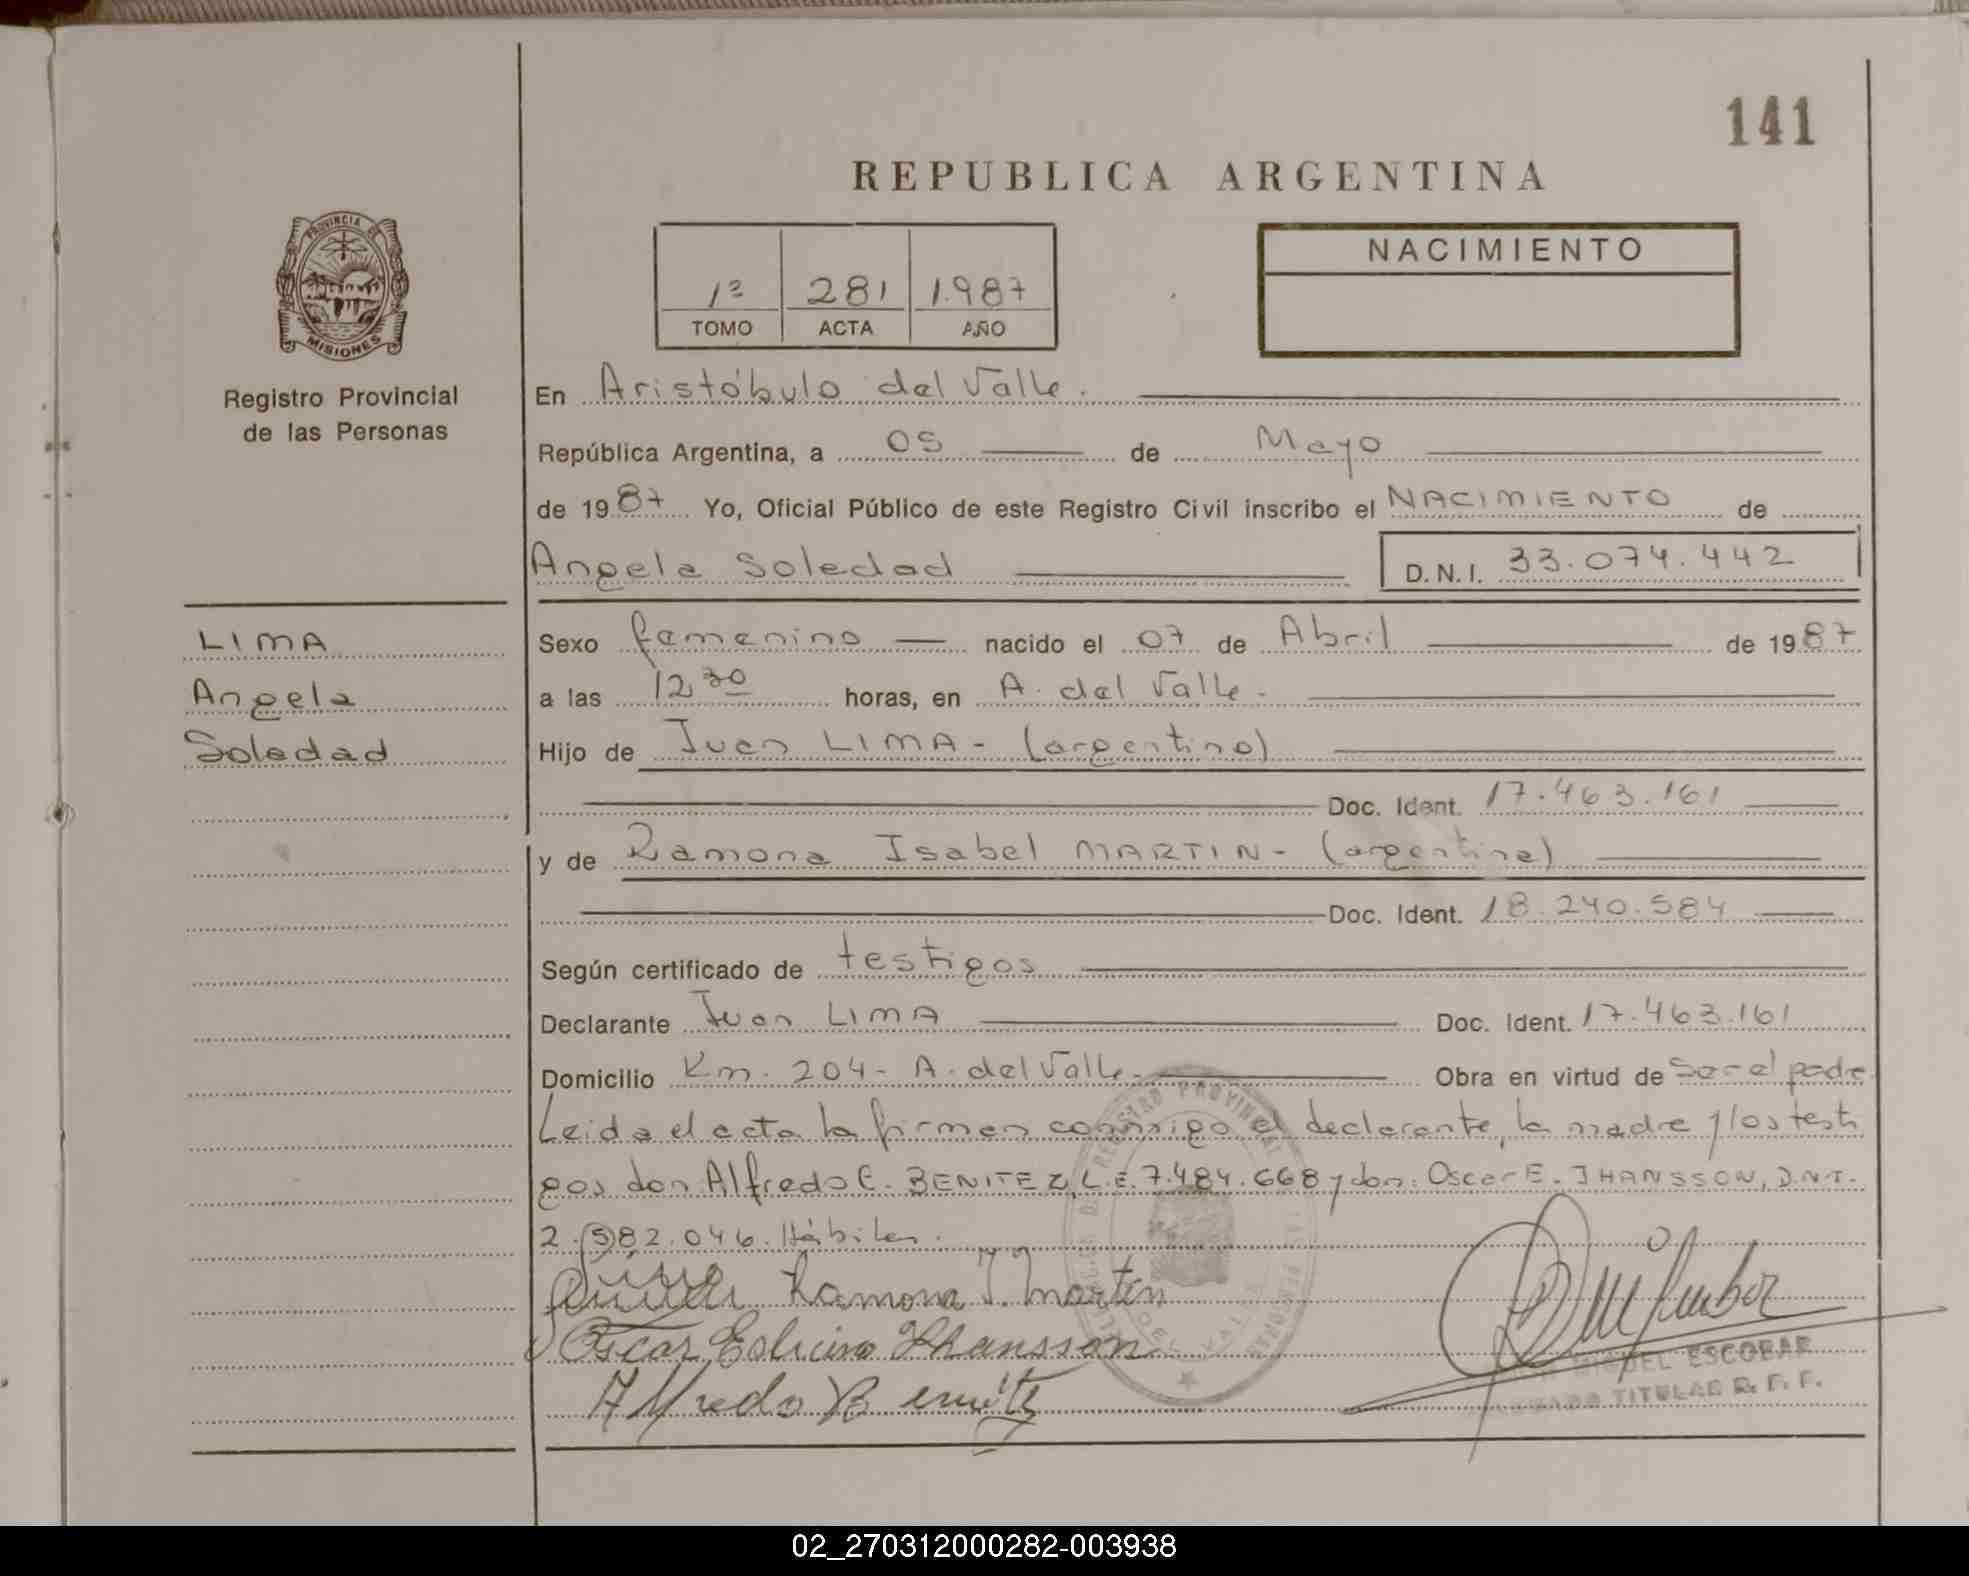 141
REPUBLICA ARGENTINA
PROVINCIA DE
MISIONES
Registro Provincial
de las Personas
1º 281 1.987
TOMO ACTA AÑO
NACIMIENTO
En Aristóbulo del Valle.
República Argentina, a 05 de Mayo
de 1987 Yo, Oficial Público de este Registro Civil inscribo el NACIMIENTO de
Angela Soledad D.N.I. 33.074.442
LIMA
Angela
Soledad
Sexo femenino nacido el 07 de Abril de 1987
a las 12 30 horas, en A. del Valle.
Hijo de Juan LIMA - (argentino)
Doc. Ident. 17.463.161
y de Ramona Isabel MARTIN - (argentina)
Doc. Ident. 18.240.584
Según certificado de testigos
Declarante Juan LIMA Doc. Ident. 17.463.161
Domicilio Km. 204 - A. del Valle. Obra en virtud de Ser el padre.
Leida el acta la firman conmigo el declarante, la madre y los testi
gos don Alfredo E. BENITEZ, L.E. 7.484.668 y don: Oscar E. JHANSSON, D.N.I.
2.582.046. Hábiles.
Ramona I. Martin
Oscar Jhansson
Alfredo Benitez
REGISTRO PROVINCIAL DE LAS PERSONAS
DEL VALLE
MIGUEL ESCOBAR
TITULAR R. P. P.
02_270312000282-003938